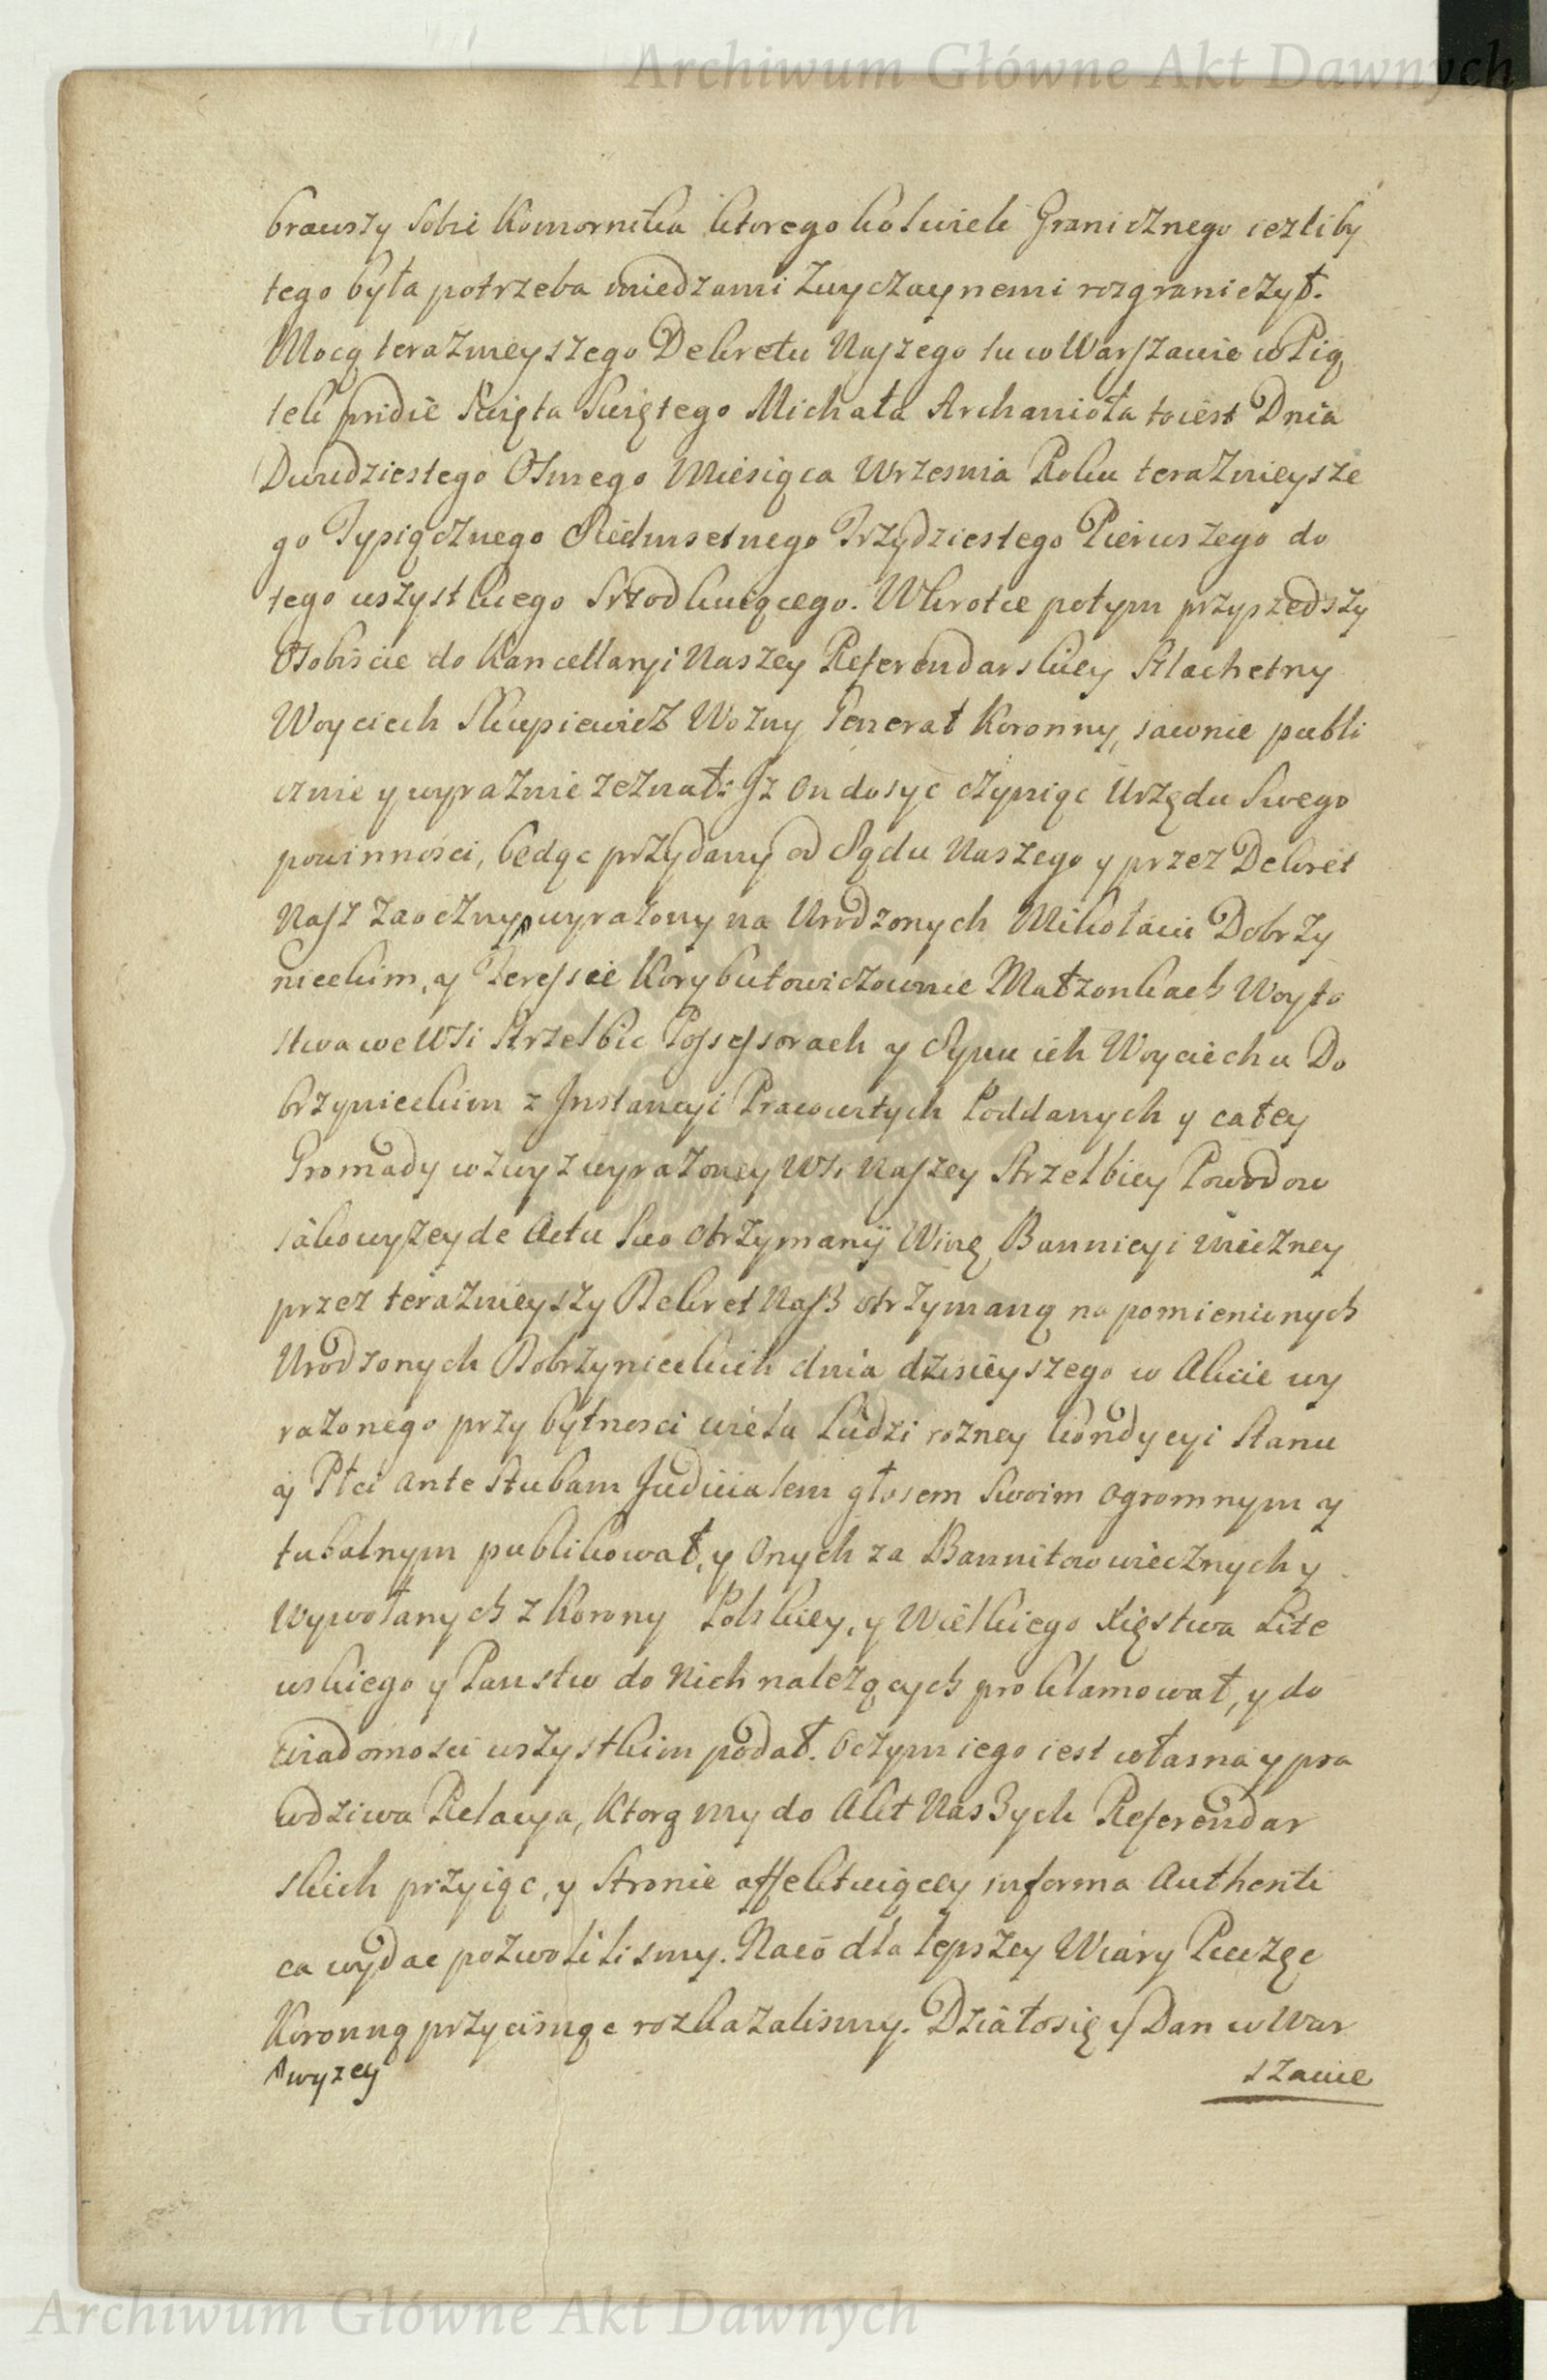 Archiwum Główne Akt Dawnych
brawszy sobie Komornika ktorego kolwiek Granicznego iezliby
tego była potrzeba miedzami zwyczaynemi rozgraniczył.
Mocą teraznieyszego Dekretu Naszego tu w Warszawie w Pią
tek pridie Swięta Swiętego Michała Archanioła to iest Dnia
Dwudziestego Osmego Miesiąca Wrzesnia Roku teraznieysze
go Tysiącznego Siedmsetnego Trzydziestego Pierwszego do
tego wszystkiego srzodkuiącego. Wkrotce potym przyszedszy
Osobiscie do Kancellaryi Naszey Referendarskiey Szlachetny
Woyciech Skupiewicz Wozny Generał Koronny, iawnie publi
cznie y wyraznie zeznał: Iz on dosyć czyniąc Urzędu Swego
powinnosci, będąc przydany od Sądu Naszego y przez Dekret
Nasz zaoczny wyrazony na Urodzonych Mikołaiu Dobrzy
nieckim, y Teressie Korybutowiczownie Małzonkach Woyto
stwa we Wsi Strzelbic Possessorach y Synu ich Woyciechu Do
brzynieckim z Instancyi Pracowitych Poddanych y całey
Gromady wzwyz wyrazoney Wsi Naszey Strzelbicy Powodow
iako wyzey de Actu suo otrzymany Winę Bannicyi wieczney
przez teraznieyszy Dekret Nasz otrzymaną na pomienionych
Urodzonych Dobrzynieckich dnia dzisieyszego w Akcie wy
razonego przy bytnosci wielu Ludzi rozney kondycyi Stanu
y Płci ante Stubam Judicialem głosem swoim ogromnym y
tubalnym publikował, y onych za Bannitow wiecznych y
Wywołanych z Korony Polskiey, y Wielkiego Xięstwa Lite
wskiego y Panstw do Nich nalezących proklamował, y do
wiadomosci wszystkim podał. O czym iego iest własna y pra
wdziwa Relacya, ktorą my do Akt Naszych Referendar
skich przyiąc, y Stronie affektuiącey in forma Authenti
ca wydac pozwolilismy. Na co dla lepszey Wiary Pieczęc
Koronną przycisnąc rozkazalismy. Działo się y Dan w War
wyzey
szawie
Archiwum Główne Akt Dawnych